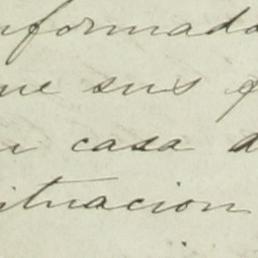 nformado
ue sus
casa d
ituacion